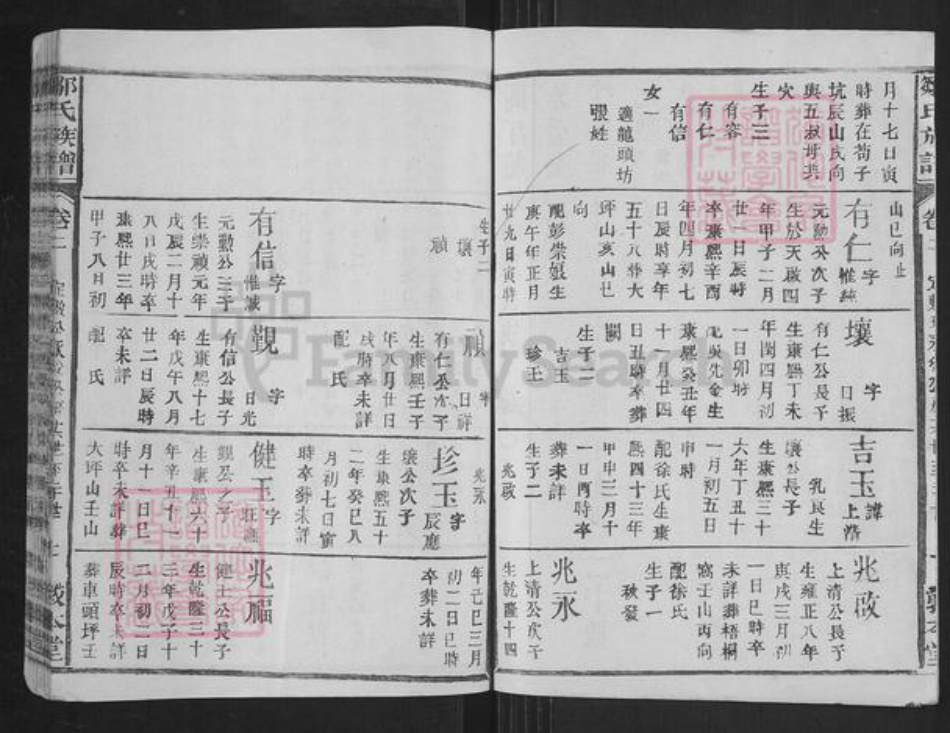 鄒氏族譜
卷二
敦本堂
月十七日寅
時葬在荀子
坑辰山戌向
與五叔母共
穴
生子三
有容
有仁
有信
女一
適龍頭坊
張姓
山巳向止
有仁
字
惟純
元勳公次子
生於天啟四
年甲子二月
廿一日辰時
卒康熙辛酉
年四月初七
日辰時享年
五十八葬大
坪山亥山巳
向
配彭崇娘生
庚午年正月
廿九日寅時
壤
字
日振
有仁公長子
生康熙丁未
年閏四月初
一日卯時
配吳先金生
康熙癸丑年
十一月廿四
日丑時卒葬
闕
生子二
吉玉
珍玉
吉玉
諱
上清
乳民生
壤公長子
生康熙三十
六年丁丑十
一月初五日
申時
配徐氏生康
熙四十三年
甲申三月十
一日丙時卒
葬未詳
生子二
兆啟
兆啟
上清公長子
生雍正八年
庚戌三月初
一日巳時卒
未詳葬梧桐
窩壬山丙向
配徐氏
生子一
秋發
兆永
上清公次子
生乾隆十四
鄒氏族譜
卷二
敦本堂
生子二
壤
禎
有信
字
惟誠
元勳公三子
生崇禎元年
戊辰二月十
八日戌時卒
康熙廿三年
甲子八月初
禎
字
日祥
有仁公次子
生康熙壬子
年八月廿日
戌時卒未詳
配氏
覲
字
日光
有信公長子
生康熙十七
年戊午八月
廿二日辰時
卒未詳
配氏
兆永
珍玉
字
辰應
壤公次子
生康熙五十
二年癸巳八
月初七日寅
時卒葬未詳
健玉
字
旺
覲公之子
生康熙六十
年辛丑十一
月十一日巳
時卒未詳葬
大坪山壬山
年己巳三月
初二日巳時
卒葬未詳
兆福
健玉公長子
生乾隆三十
三年戊子十
二月初二日
辰時卒未詳
葬車頭坪壬
FamilySearch